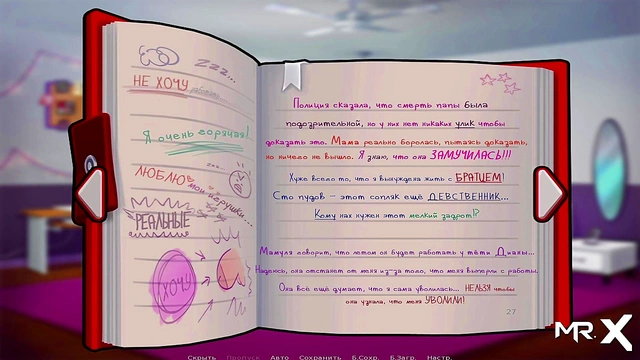 zzz...
НЕ ХОЧУ работать...
Я очень горячая!
ЛЮБЛЮ мои игрушки...
РЕАЛЬНЫЕ
ХОЧУ
Полиция сказала, что смерть папы была
подозрительной, но у них нет никаких улик чтобы
доказать это. Мама реально боролась, пытаясь доказать,
но ничего не вышло. Я знаю, что она ЗАМУЧИЛАСЬ!!!
Хуже всего то, что я вынуждена жить с БРАТЦЕМ!
Сто пудов – этот сопляк ещё ДЕВСТВЕННИК...
Кому нах нужен этот мелкий задрот!?
Мамуля говорит, что летом он будет работать у тёти Дианы...
Надеюсь, она отстанет от меня из-за того, что меня выперли с работы.
Она всё ещё думает, что я сама уволилась... НЕЛЬЗЯ чтобы
она узнала, что меня УВОЛИЛИ!
27
MR.X
Скрыть Пропуск Авто Сохранить Б.Сохр. Б.Загр. Настр.